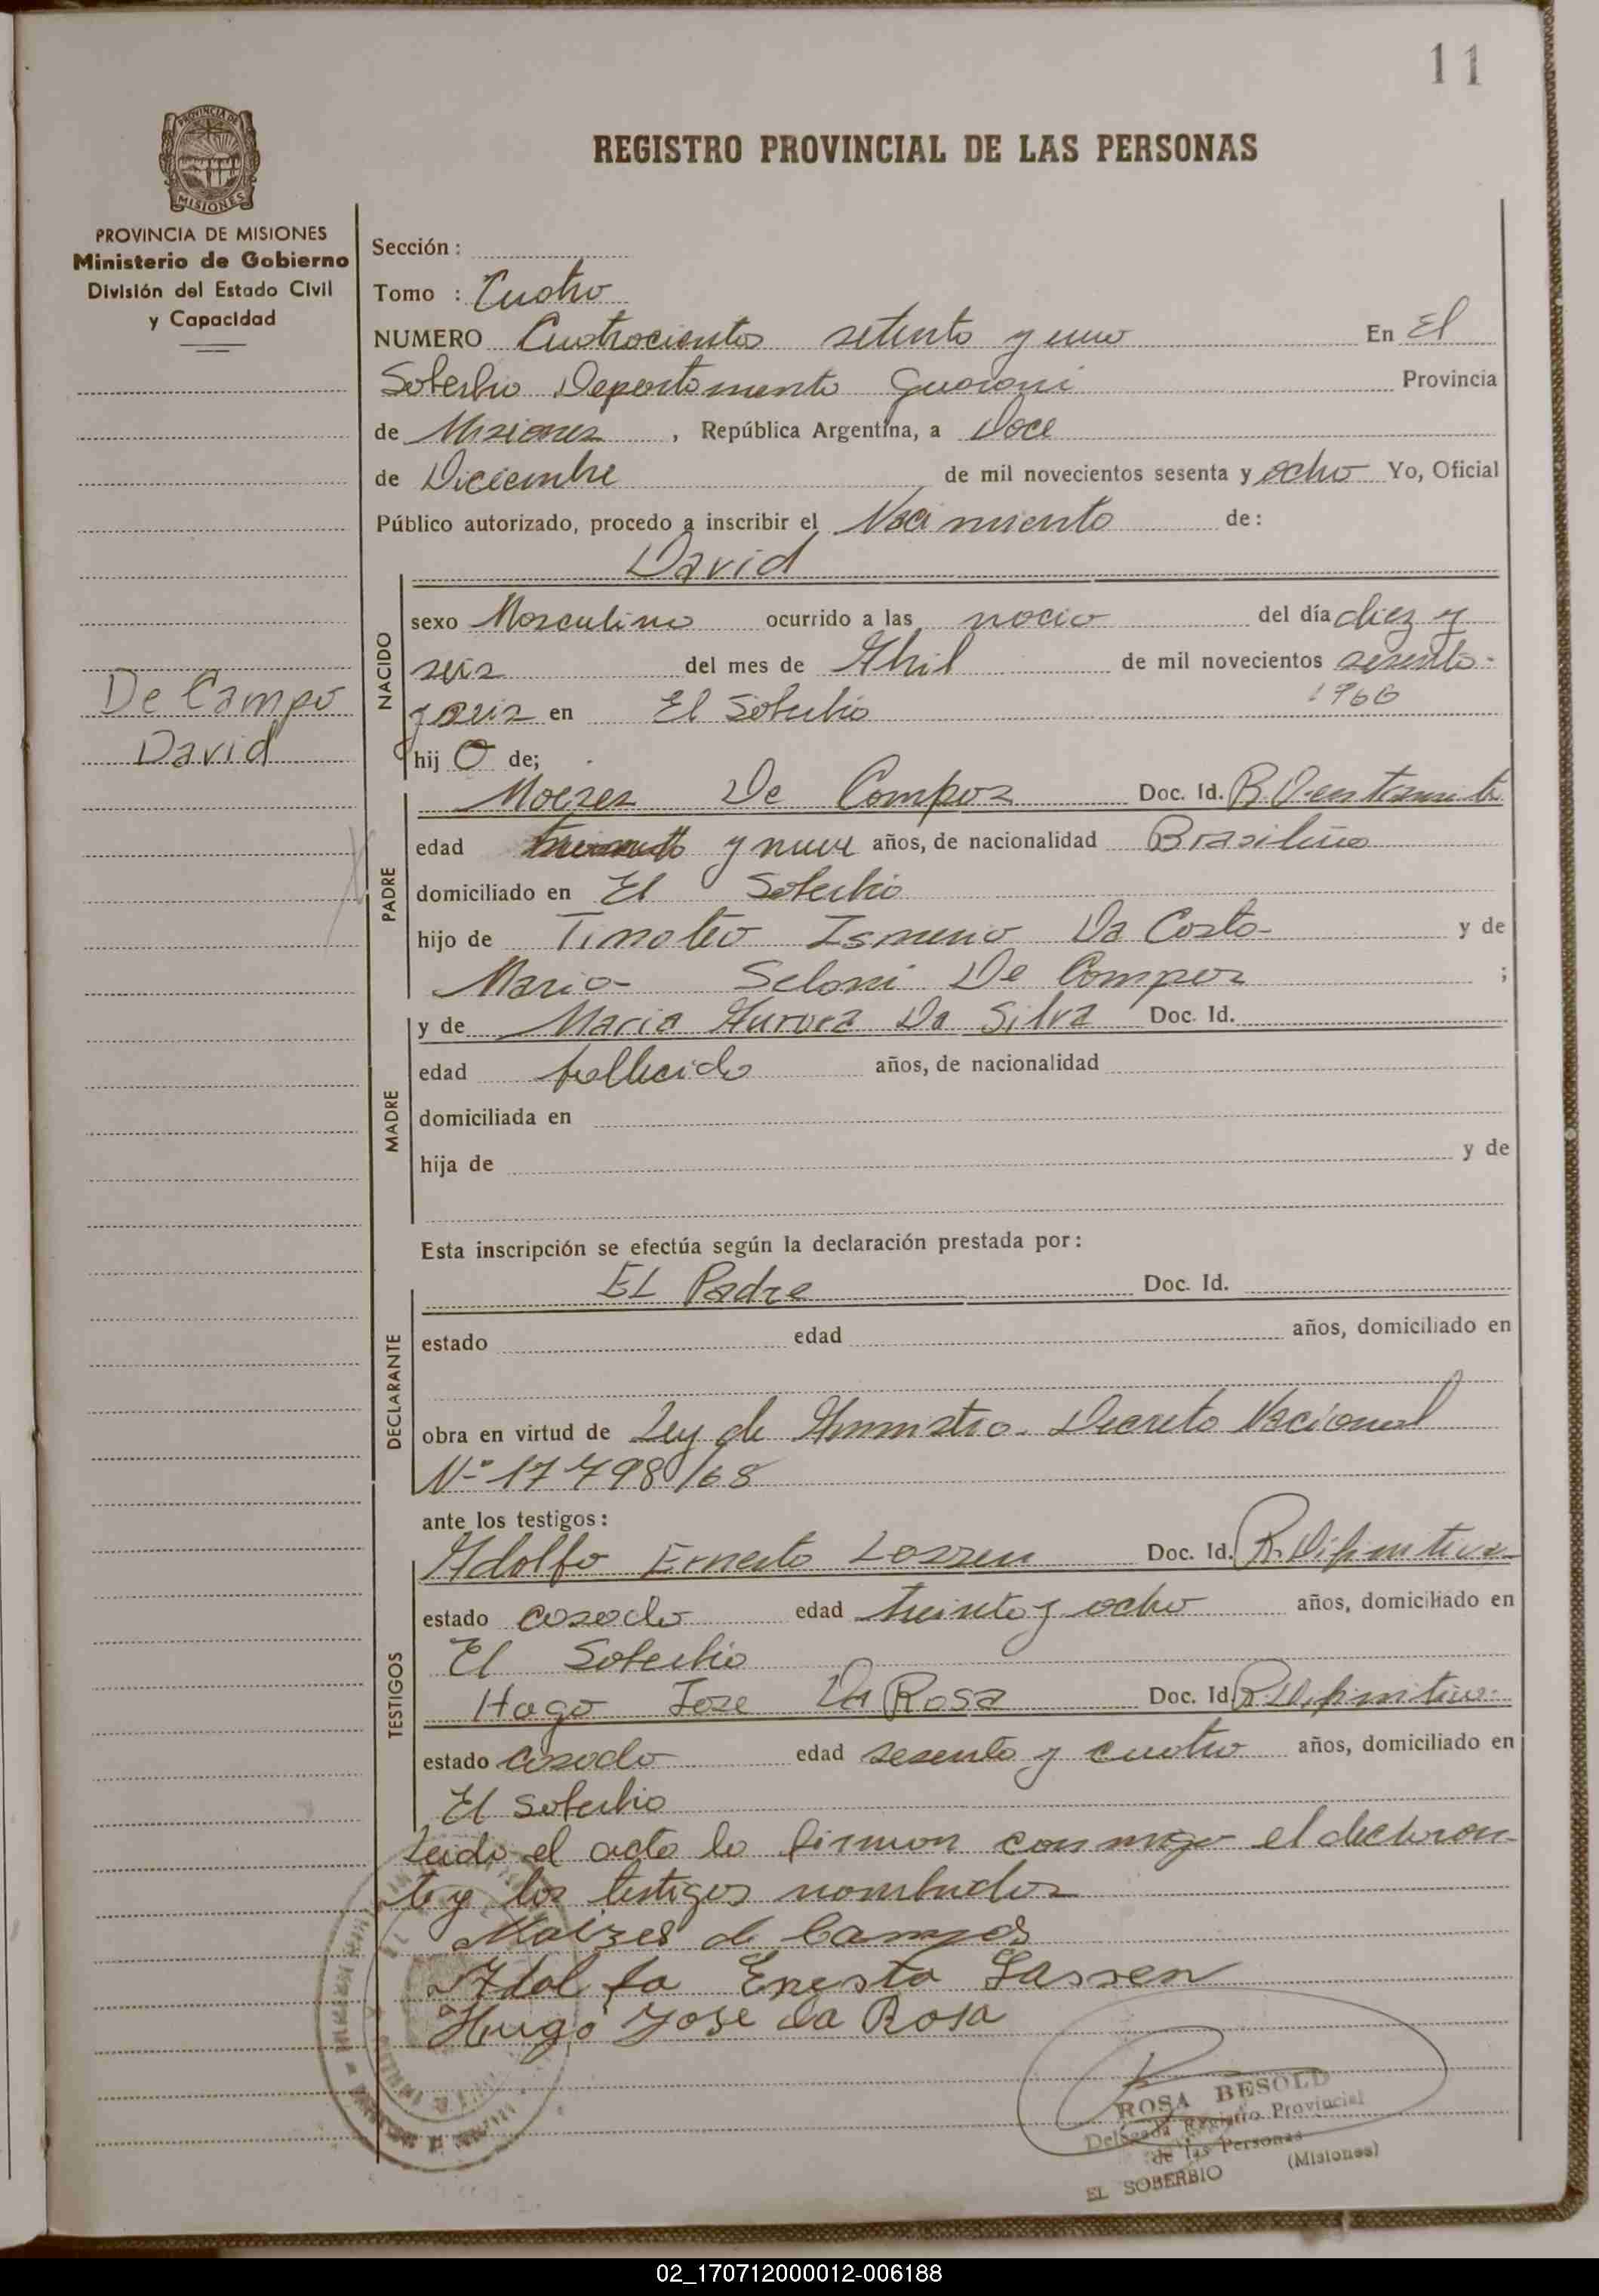 11
PROVINCIA DE
MISIONES
REGISTRO PROVINCIAL DE LAS PERSONAS
PROVINCIA DE MISIONES
Ministerio de Gobierno
División del Estado Civil
y Capacidad
Sección :
Tomo : Cuatro
NUMERO Cuatrocientos setenta y uno En El
Soberbio Departamento Guarani Provincia
de Misiones , República Argentina, a Doce
de Diciembre de mil novecientos sesenta y ocho Yo, Oficial
Público autorizado, procedo a inscribir el Nacimiento de:
David
NACIDO
sexo Masculino ocurrido a las del día diez y
seis del mes de Abril de mil novecientos sesenta
y seis en El Soberbio 1966
hij o de;
De Campo
David
PADRE
Moises De Campos Doc. Id.
edad y nueve años, de nacionalidad Brasileño
domiciliado en El Soberbio
hijo de Timoteo Ismerio Da Costa y de
Maria De Campos ;
MADRE
y de Maria Aurora Da Silva Doc. Id.
edad fallecida años, de nacionalidad
domiciliada en
hija de y de
Esta inscripción se efectúa según la declaración prestada por:
DECLARANTE
EL Padre Doc. Id.
estado edad años, domiciliado en
obra en virtud de Ley de Amnistia. Decreto Nacional
Nº 17798/68
ante los testigos:
TESTIGOS
Adolfo Ernesto Lassen Doc. Id. R. Difinitiva
estado casado edad treinta y ocho años, domiciliado en
El Soberbio
Hugo Jose Da Rosa Doc. Id. R. Difinitiva
estado casado edad sesenta y cuatro años, domiciliado en
El Soberbio
Leida el acta la firman conmigo el declaran-
te y los testigos nombrados
Moizes de Campos
Adolfo Enesto Lassen
Hugo Jose da Rosa
ROSA BESOLD
Delegada Registro Provincial
de las Personas
EL SOBERBIO (Misiones)
02_170712000012-006188